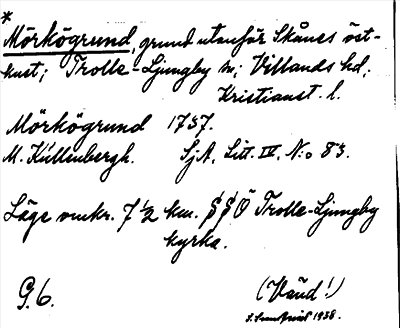 *
Mörkögrund, grund utanför Skånes öst-
kust; Trolle-Ljungby sn; Villands hd;
Kristianst. l.
Mörkögrund 1737.
M. Kullenbergh. SjA, Litt. IV, N:o 83.
Läge omkr. 7 1/2 km. SSÖ Trolle-Ljungby
kyrka.
G. 6.
(Vänd!)
1938.